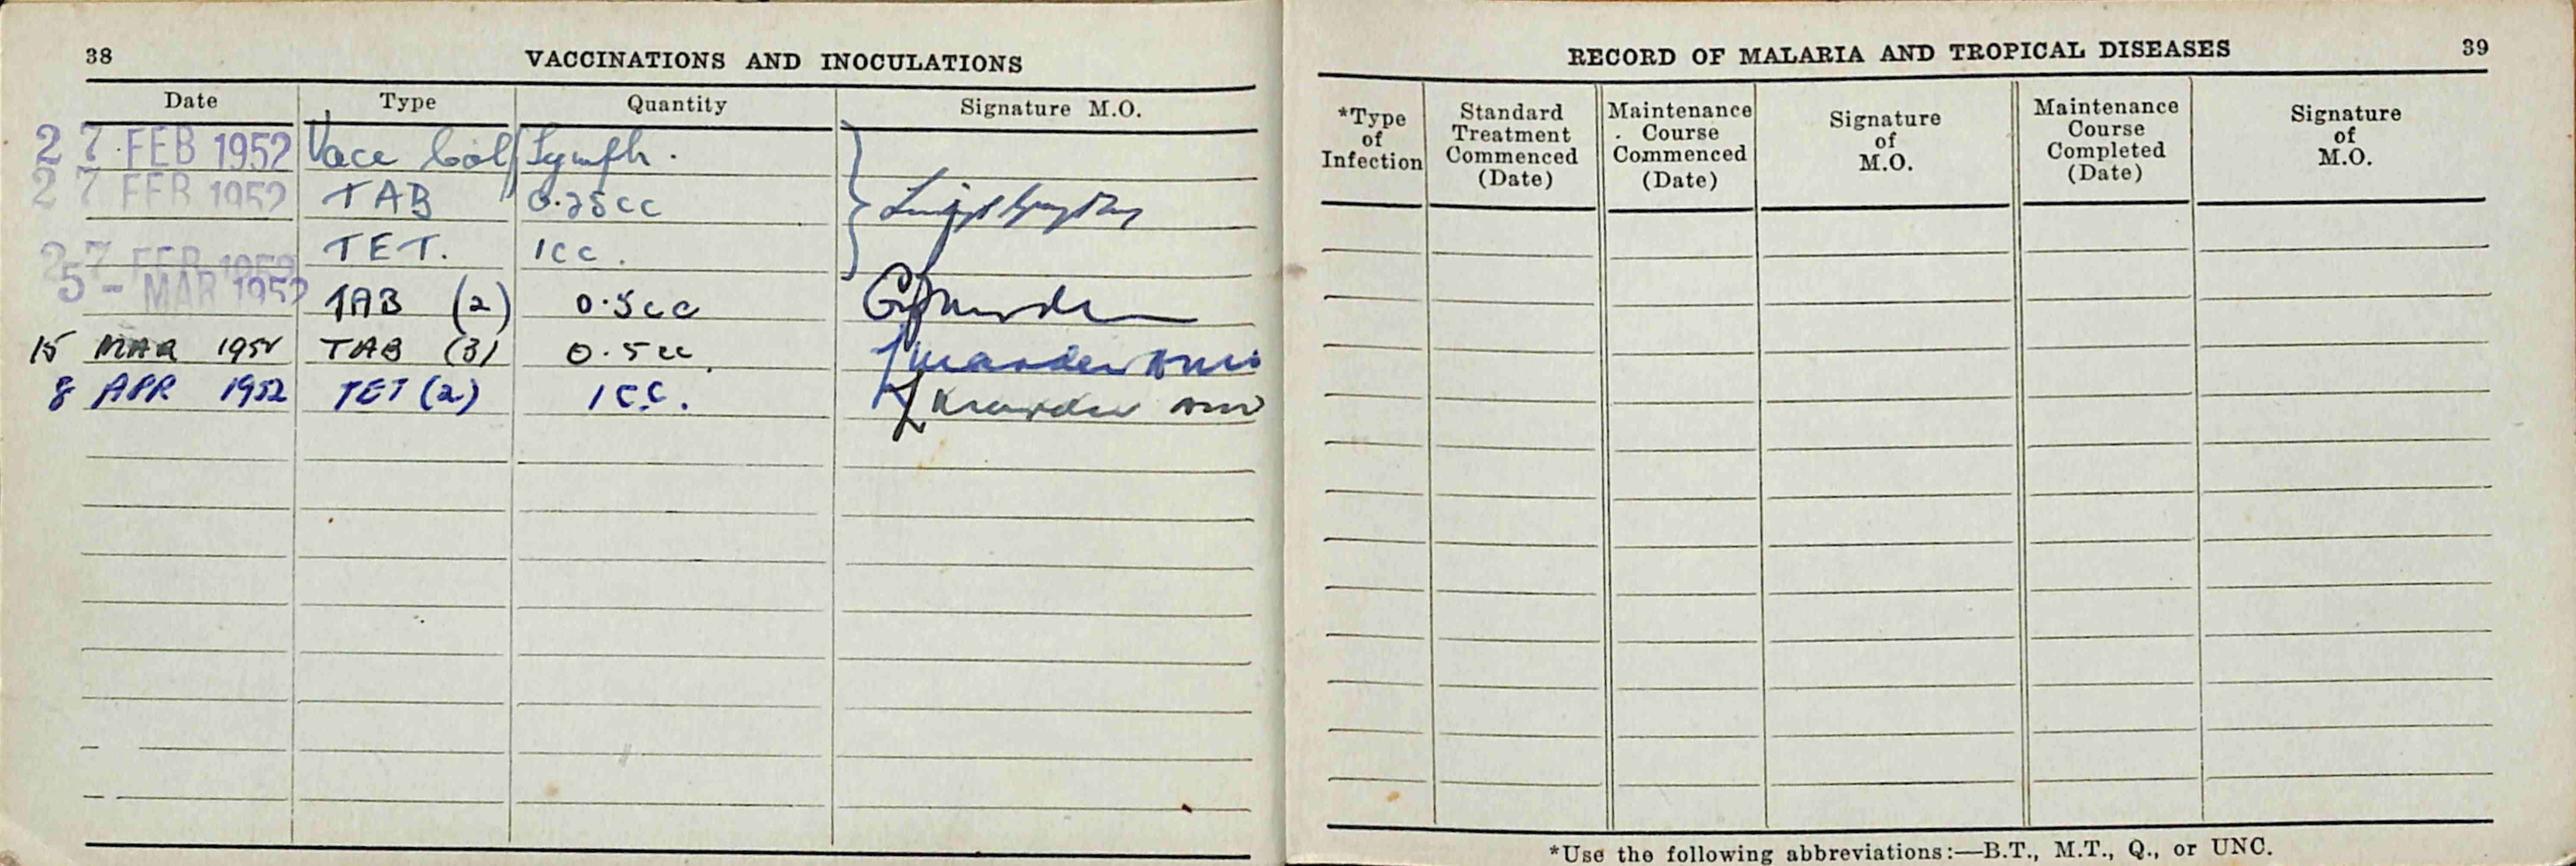 38 VACCINATIONS AND INOCULATIONS
Date Type Quantity Signature M.O.
27 FEB 1952 Vacc Calf Lymph.
27 FEB 1952 TAB 0.25cc
27 FEB 1952 TET. 1cc.
5 - MAR 1952 TAB (2) 0.5cc
15 MAR 1952 TAB (3) 0.5cc
8 APR 1952 TET (2) 1cc.
RECORD OF MALARIA AND TROPICAL DISEASES 39
*Type of Infection
Standard Treatment Commenced (Date)
Maintenance Course Commenced (Date)
Signature of M.O.
Maintenance Course Completed (Date)
Signature of M.O.
*Use the following abbreviations:—B.T., M.T., Q., or UNC.